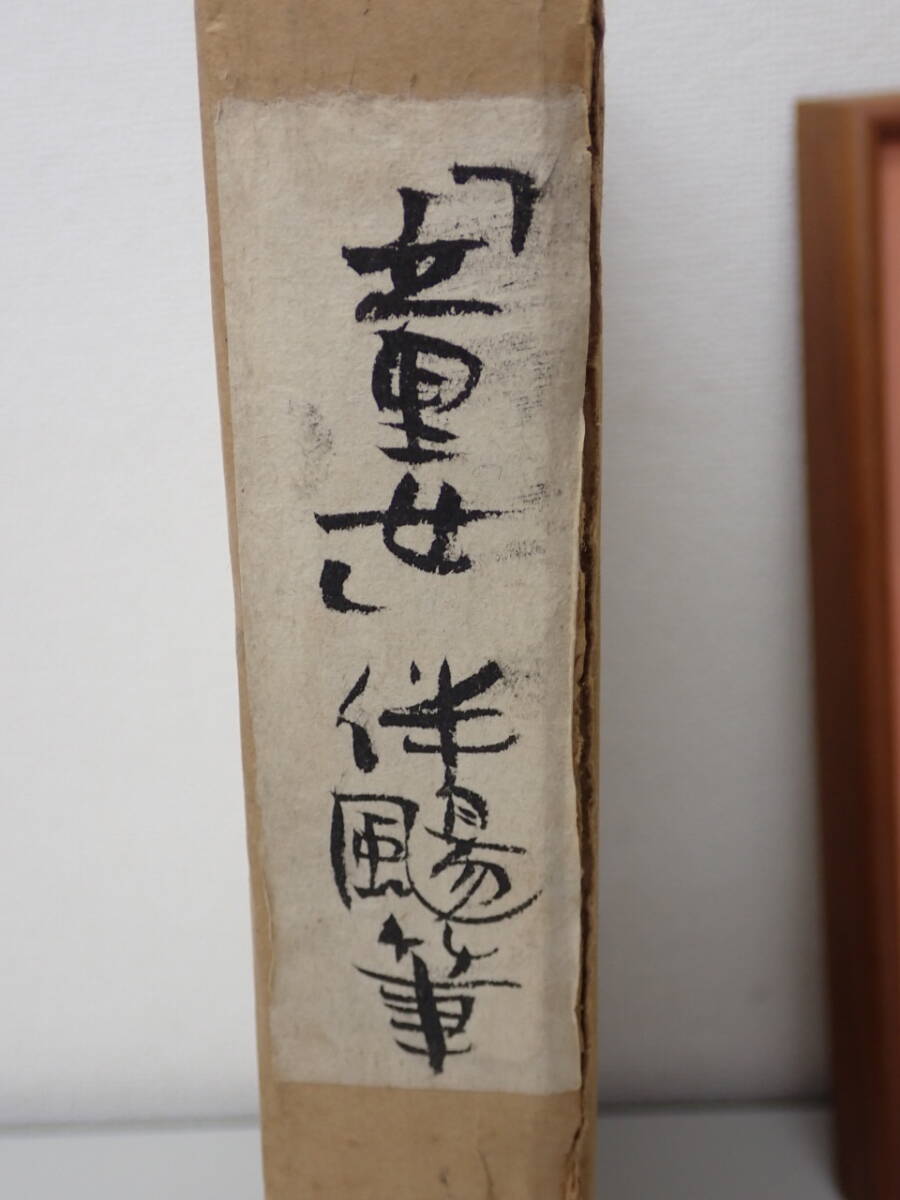 「童女」 伴颺筆